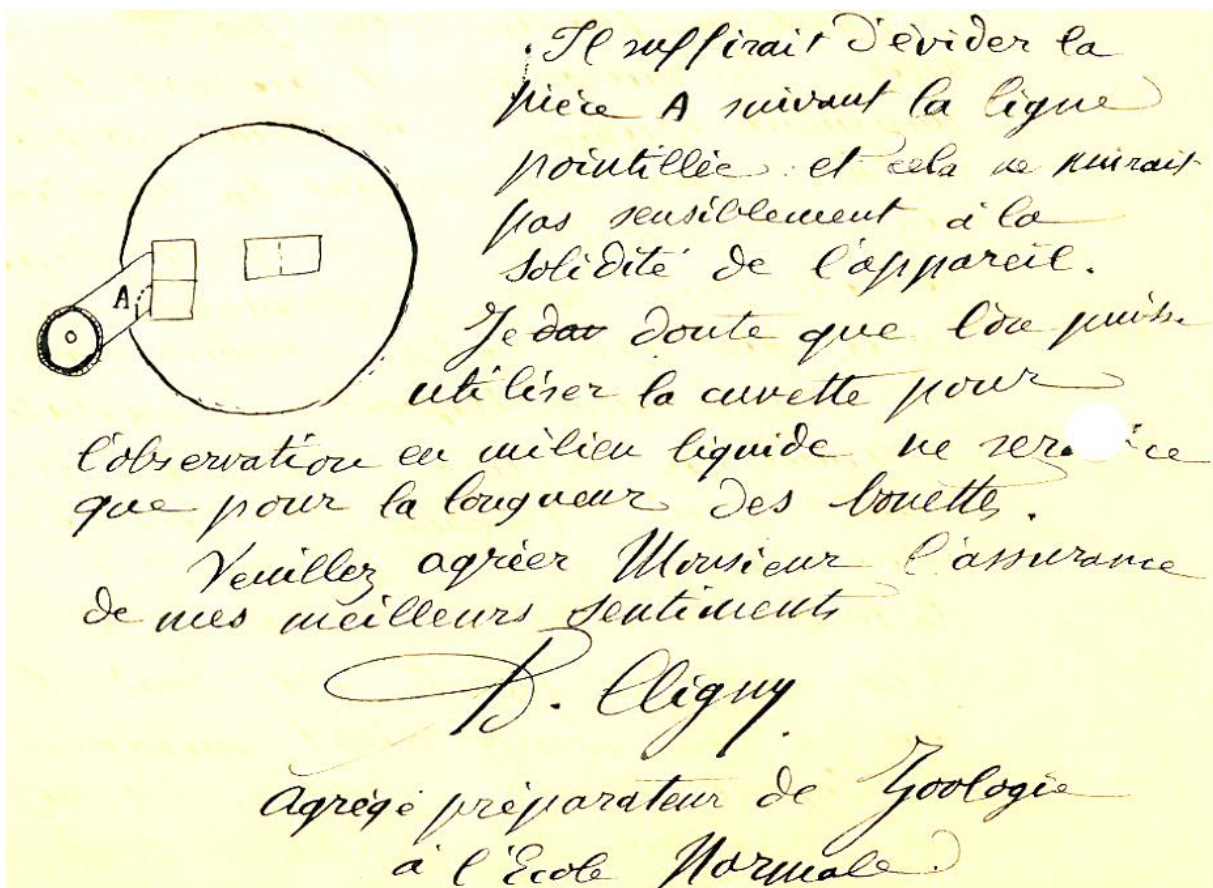 Il suffirait d'évider la
pièce A suivant la ligne
pointillée et cela ne nuirait
pas sensiblement à la
solidité de l'appareil.
A
Je dou doute que l'on puisse
utiliser la cuvette pour
l'observation en milieu liquide ne
que pour la longueur des
Veuillez agréer Monsieur l'assurance
de mes meilleurs sentiments
Cligny
agrégé préparateur de Zoologie
à l'Ecole Normale